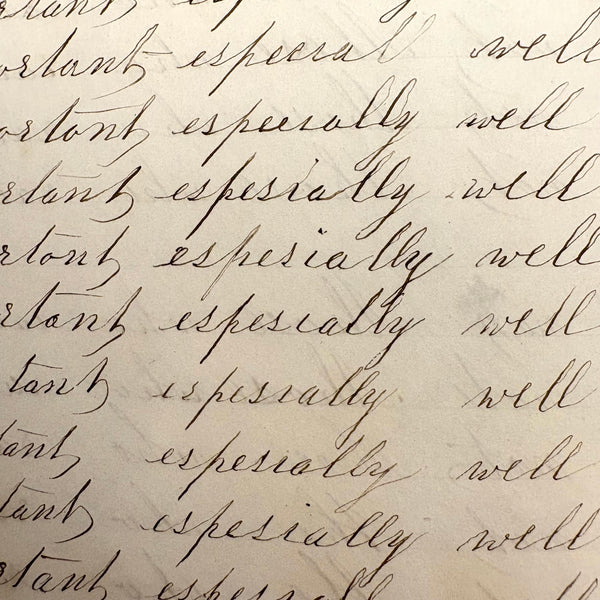 ortant especiall well
ortant especially well
rtant espesially well
rtant espesially well
rtant espesially well
tant espesially well
tant espesially well
tant espesially well
rtant